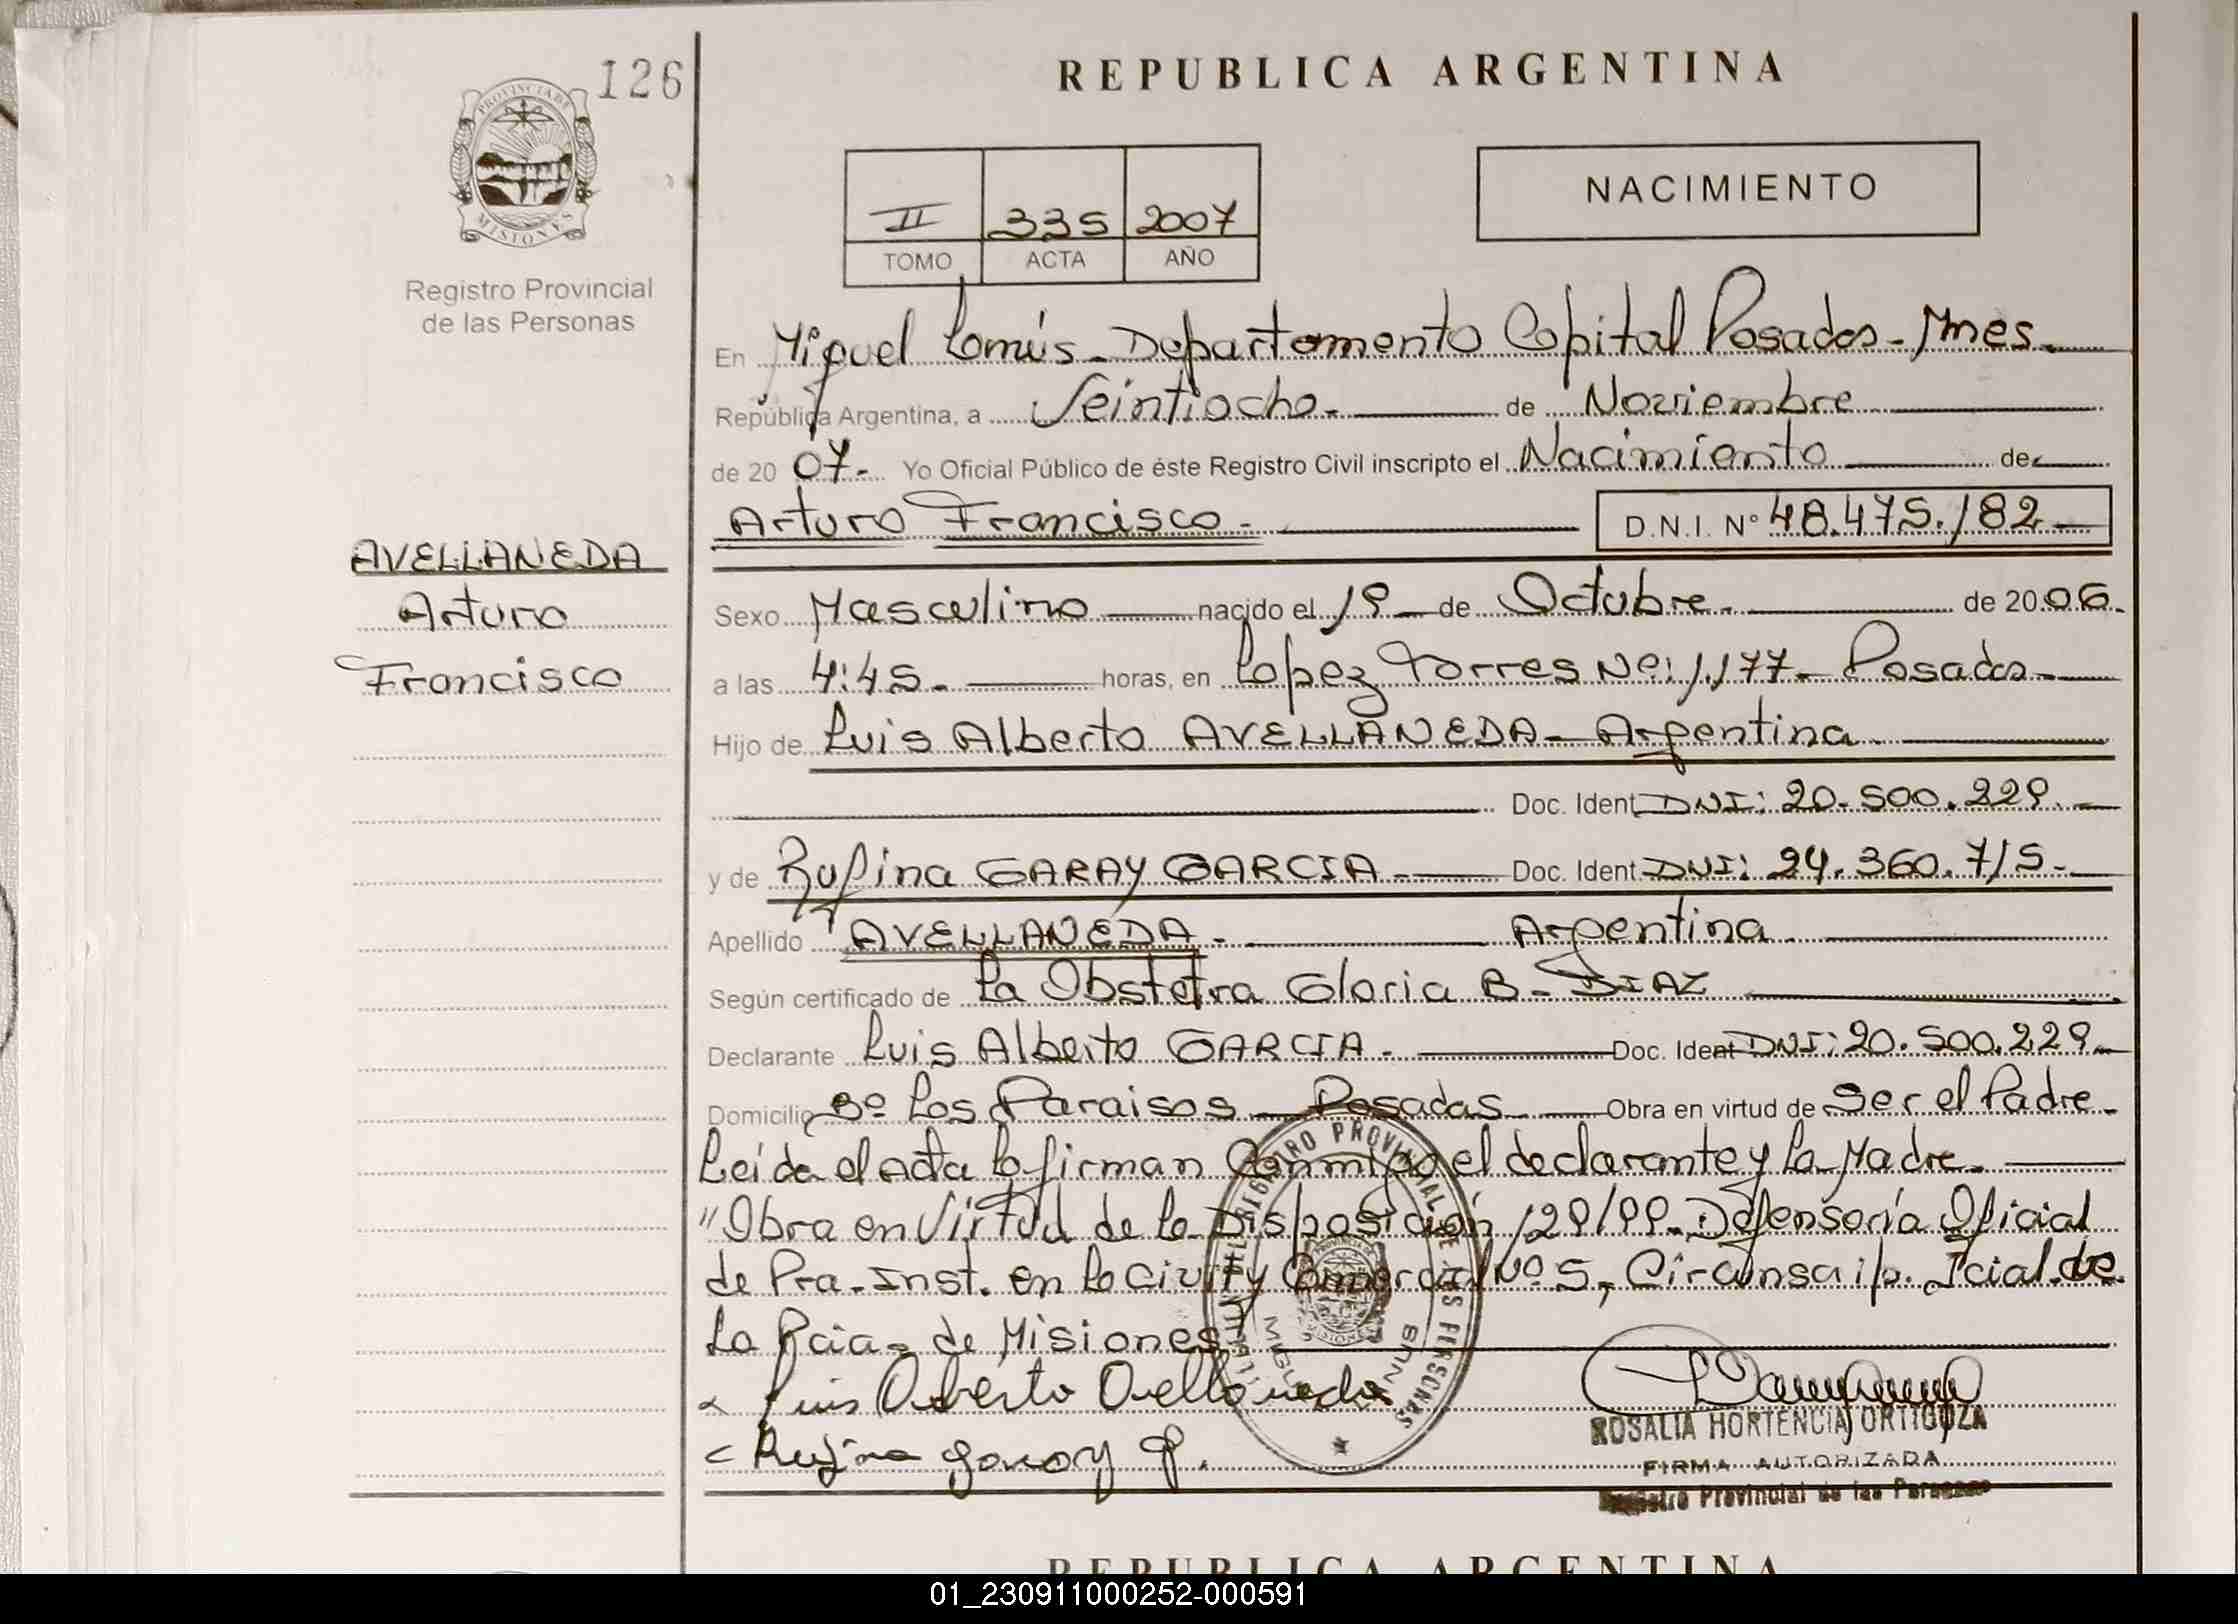 126
REPUBLICA ARGENTINA
PROVINCIA DE
MISIONES
Registro Provincial
de las Personas
II 335 2007
TOMO ACTA AÑO
NACIMIENTO
En Miguel Lanús - Departamento Capital Posadas - Mnes.
República Argentina, a Veintiocho. de Noviembre
de 20 07. Yo Oficial Público de éste Registro Civil inscripto el Nacimiento de
Arturo Francisco. D.N.I. Nº 48.475.182
AVELLANEDA
Arturo
Francisco
Sexo Masculino nacido el 19 de Octubre. de 20 06.
a las 4:45. horas, en Lopez Torres Nº: 1.177 - Posadas.
Hijo de Luis Alberto AVELLANEDA - Argentina
Doc. Ident. DNI: 20.500.229.
y de Rufina GARAY GARCIA. Doc. Ident. DNI: 24.360.715.
Apellido AVELLANEDA. Argentina
Según certificado de La Obstetra Gloria B. DIAZ
Declarante Luis Alberto GARCIA. Doc. Ident DNI: 20.500.229.
Domicilio Bº Los Paraisos Posadas Obra en virtud de Ser el Padre.
Leída el acta la firman Conmigo el declarante y la Madre.
"Obra en Virtud de la Disposición 129/99. Defensoría Oficial
de Pra. Inst. en lo Civil y Comercial Nº 5, Jcial. de
La Pcia. de Misiones
Luis Alberto Avellaneda
Rufina Garay G.
ROSALIA HORTENCIA ORTIGOZA
FIRMA AUTORIZADA
Registro Provincial de las Personas
REPUBLICA ARGENTINA
01_230911000252-000591